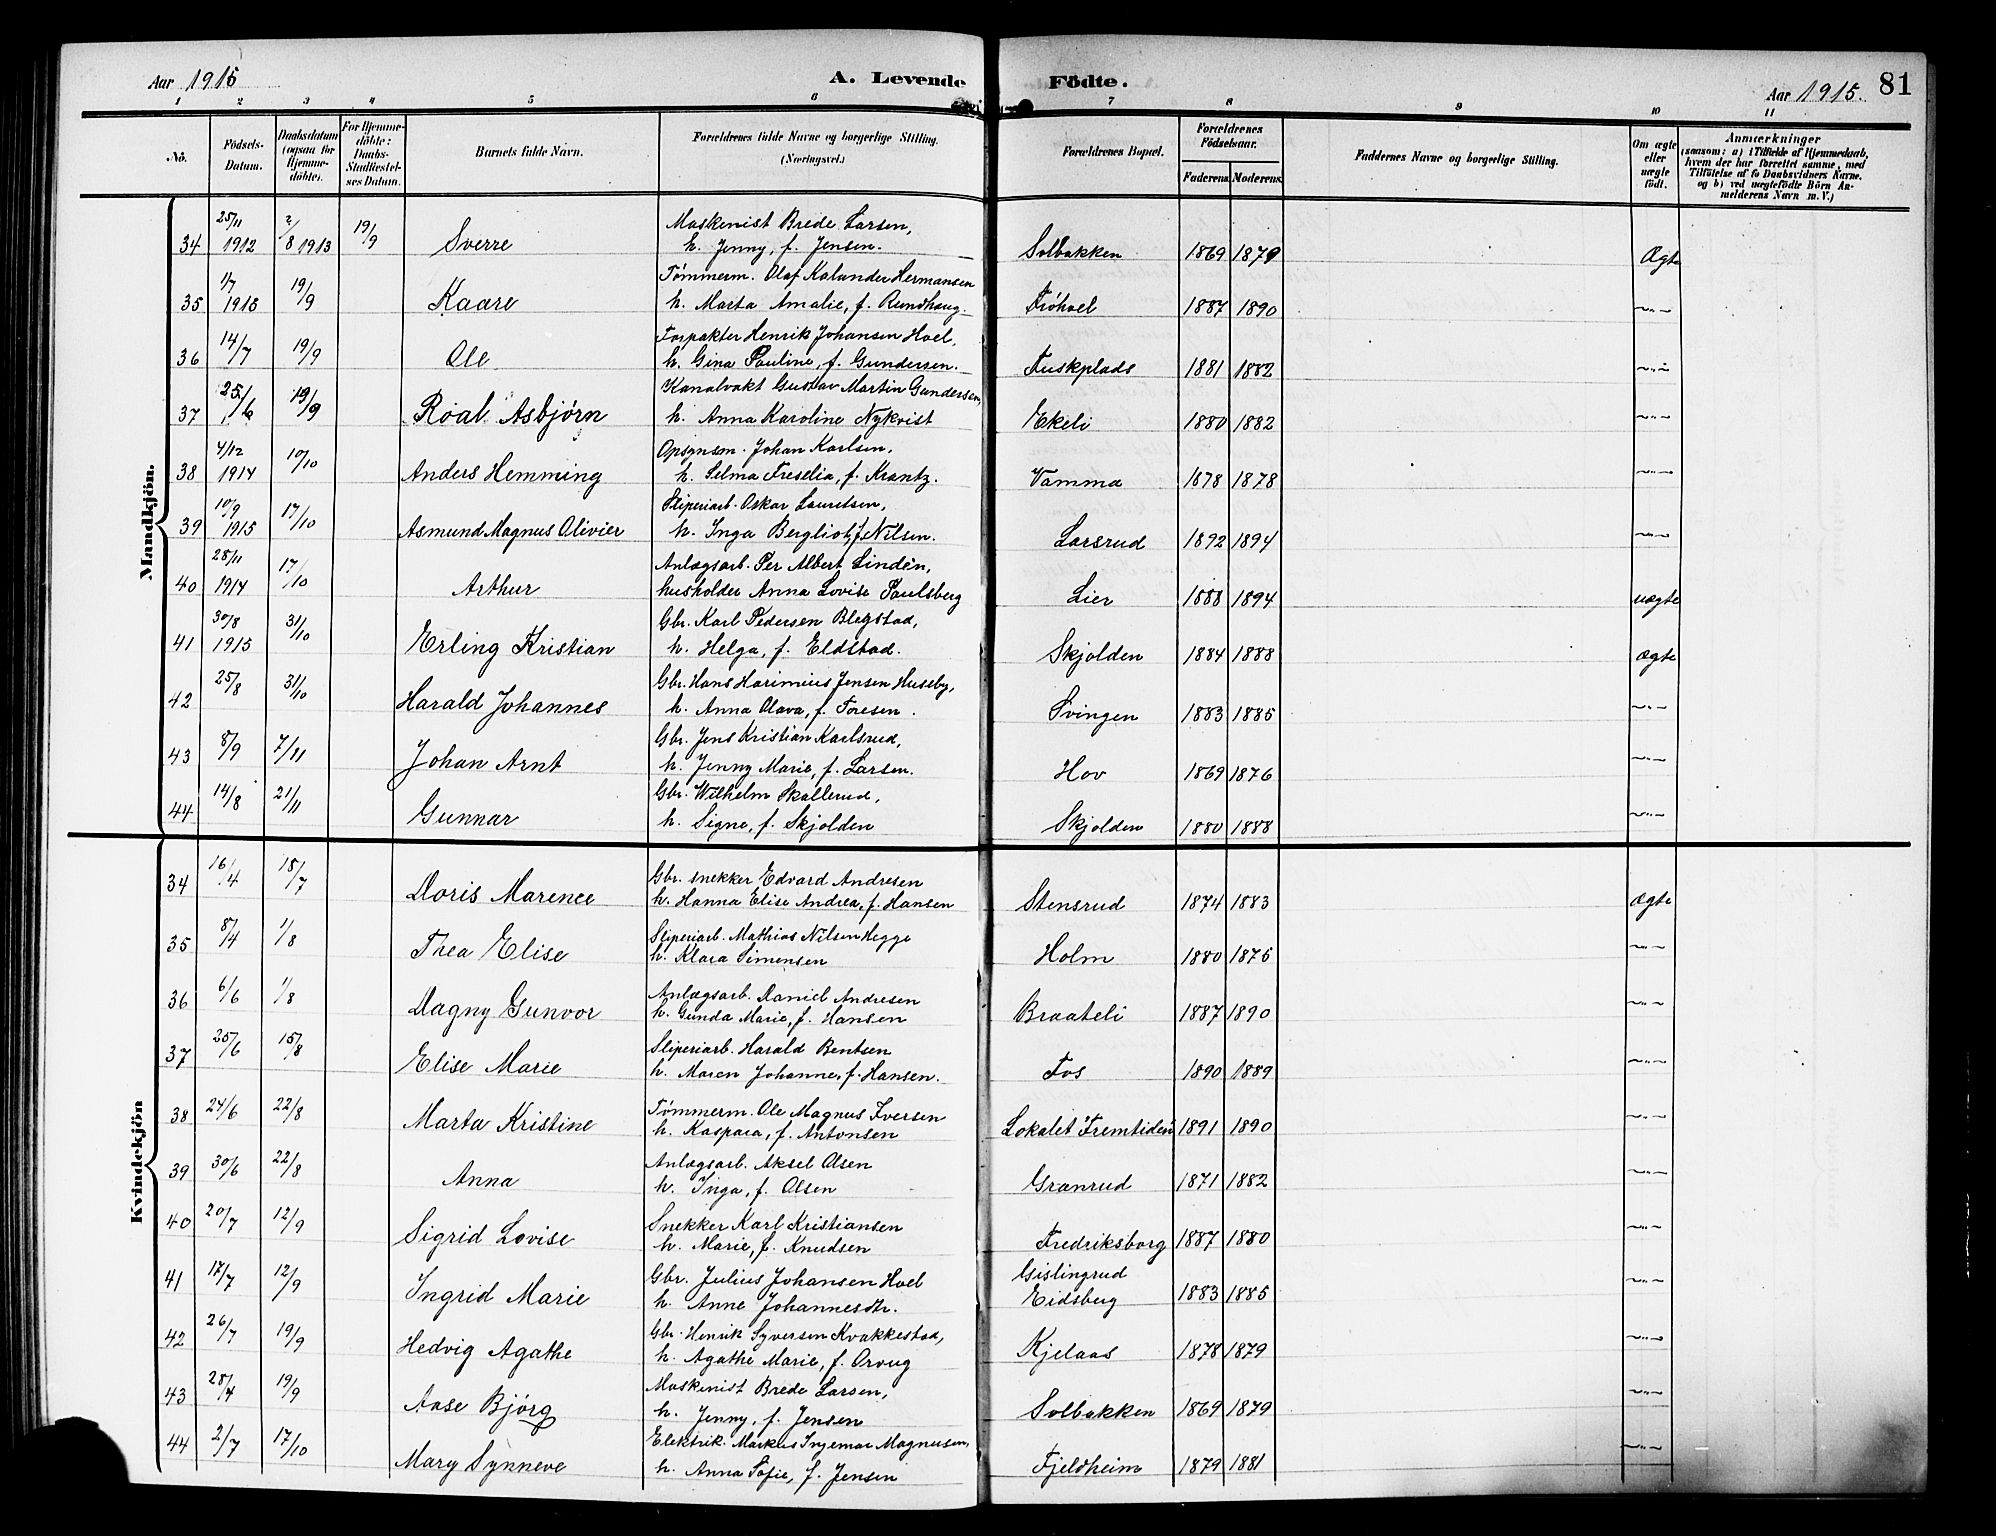 Aar 1915 A. Levende Födte. Aar 1915. 81
1 2 3 4 5 6 7 8 9 10 11
No. Födsels-Datum. Daabsdatum (ogsaa for Hjemmedöbte). For Hjemmedöbte: Daabs-Stadfæstelses Datum. Barnets fulde Navn. Forældrenes fulde Navne og borgerlige Stilling. (Næringsvei.) Forældrenes Bopæl. Forældrenes Födselsaar. Faderens Moderens Faddernes Navne og borgerlige Stilling. Om ægte eller uægte födt. Anmærkninger (saasom: a) i Tilfælde af Hjemmedaab, hvem der har forrettet samme, med Tilföielse af to Daabsvidners Navne. og b) ved uægtefödte Börn Anmelderens Navn m. V.)
Mandkjön.
34 25/11 1912 2/8 1913 19/9 Sverre Maskenist Brede Larsen, Solbakken 1869 1879 Ægte
h. Jenny, f. Jensen.
35 1/7 1915 19/9 Kaare Tømmerm. Olaf Kalander Hermansen Fróhoel 1887 1890 -"-
h. Marta Amalie, f. Rundhaug.
36 14/7 19/9 Ole Forpakter Henrik Johansen Hoel, Fuskplads 1881 1882 -"-
h. Gina Pauline, f. Gundersen.
37 25/6 19/9 Roal Asbjørn Kanalvakt Gustav Martin Gundersen, Ekeli 1880 1882 -"-
h. Anna Karoline Nykvist
38 4/12 1914 10/10 Anders Hemming Opsynsm. Johan Karlsen, Vamma 1878 1878 -"-
h. Selma Freselia, f. Krantz.
39 10/9 1915 17/10 Asmund Magnus Olivier Sliperiarb. Oskar Lauritsen, Larsrud 1892 1894 -"-
h. Inga Bergliot, f. Nilsen.
40 28/11 1914 17/10 Arthur Anlægsarb. Per Albert Lindén, Lier 1888 1894 uægte
husholder Anna Lovise Paulsberg
41 30/8 1915 31/10 Erling Kristian Gbr. Karl Pedersen Blegstad, Skjolden 1884 1888 ægte
h. Helga, f. Eldstad.
42 25/8 31/10 Harald Johannes Gbr. Hans Harimius Jensen Huseby, Svingen 1883 1885 -"-
h. Anna Olava, f. Toresen.
43 8/9 7/11 Johan Arnt Gbr. Jens Kristian Karlsrud, Hov 1869 1876 -"-
h. Jenny Marie, f. Larsen.
44 14/8 21/11 Gunnar Gbr. Wilhelm Skallerud, Skjolden 1880 1888 -"-
h. Signe, f. Skjolden
Kvindekjön
34 16/4 18/7 Doris Marence Gbr. snekker Edvard Andresen Stensrud 1874 1883 Ægte
h. Hanna Elise Andrea, f. Hansen
35 8/4 1/8 Thea Elise Sliperiarb. Mathias Nilsen Hegge Holm 1880 1875 -"-
h. Klara Simensen
36 6/6 1/8 Dagny Gunvor Anlægsarb. Daniel Andresen Braateli 1887 1890 -"-
h. Gunda Marie, f. Hansen
37 25/6 15/8 Elise Marie Sliperiarb. Harald Bentsen Fos 1890 1889 -"-
h. Maren Johanne, f. Hansen.
38 24/6 22/8 Marta Kristine Tømmerm. Ole Magnus Iversen Lokalet Fremtiden 1891 1890 -"-
h. Kaspara, f. Antonsen
39 30/6 22/8 Anna Anlægsarb. Aksel Olsen Granrud 1871 1882 -"-
h. Inga, f. Olsen
40 20/7 12/9 Sigrid Lovise Snekker Karl Kristiansen Fredriksborg 1887 1880 -"-
h. Marie, f. Knudsen
41 17/7 12/9 Ingrid Marie Gbr. Julius Johansen Hoel Gislingrud Eidsberg 1883 1885 -"-
h. Anne Johannesdtr.
42 26/7 19/9 Hedvig Agathe Gbr. Henrik Syversen Kvakkestad, Kjelaas 1878 1879 -"-
h. Agathe Marie, f. Orvug
43 28/4 19/9 Aase Bjórg Maskenist Brede Larsen, Solbakken 1869 1879 -"-
h. Jenny, f. Jensen
44 2/7 17/10 Mary Synneve Elektrik. Markus Ingemar Magnusen, Fjeldheim 1879 1881 -"-
h. Anna Sofie, f. Jensen